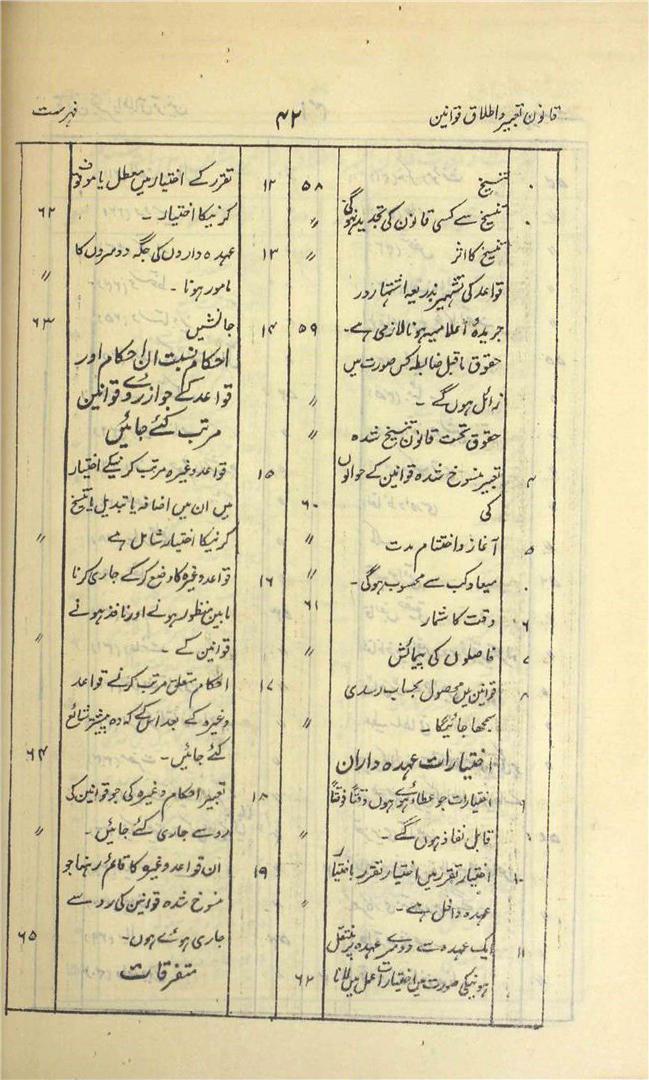 قانون تعبیر و اطلاق قوانین ۴۲ فہرست
۰ تنسیخ ۵۸
۰ تنسیخ سے کسی قانون کی تجدید نہوگی ״
تنسیخ کا اثر ״
قواعد کی تشہیر بذریعہ اشتہار در
جریدۂ اعلامیہ ہونا لازمی ہے۔ ۵۹
حقوق ماقبل ضابطہ کس صورت میں
زائل ہوں گے ۔ ״
حقوق تحت قانون تنسیخ شدہ ״
۴ تعبیر منسوخ شدہ قوانین کے حوالوں
کی ۶۰
۵ آغاز و اختتام مدت ״
۰ میعاد کب سے محسوب ہوگی ۔ ״
۶ وقت کا شمار ۶۱
۷ فاصلوں کی پیمائش ״
۸ قوانین میں محصول بحساب رسدی
سمجھا جائیگا ۔ ״
اختیارات عہدہ داران
۹ اختیارات جو عطاء ہوئے ہوں وقتاً فوقتاً
قابل نفاذ ہوں گے ۔ ״
۱۰ اختیار تقرر میں اختیار تقرر باختیار
عہدہ داخل ہے ۔ ״
۱۱ ایک عہدہ سے دوسرے عہدہ پر منتقل
ہونیکی صورت میں اختیارات عمل میں لانا ۶۲
۱۲ تقرر کے اختیار میں معطل یا موقوف
کرنیکا اختیار ۔ ۶۲
۱۳ عہدہ داروں کی جگہ دوسروں کا
مامور ہونا ۔ ״
۱۴ جانشیں ۶۳
احکام نسبت ان احکام اور
قواعد کے جو ازروے قوانین
مرتب کئے جائیں
۱۵ قواعد وغیرہ مرتب کرنیکے اختیار
میں ان میں اضافہ یا تبدیل یا تنسیخ
کرنیکا اختیار شامل ہے ״
۱۶ قواعد وغیرہ کا وضع کرکے جاری کرنا
مابین منظور ہونے اور نافذ ہونے
قوانین کے ۔ ״
۱۷ احکام متعلق مرتب کرنے قواعد
وغیرہ کے بعد اس کے کہ وہ پیشتر شائع
کئے جائیں ۔ ۶۴
۱۸ تعبیر احکام وغیرہ کی جو قوانین کی
رو سے جاری کئے جائیں ۔ ״
۱۹ ان قواعد وغیرہ کا قائم رہنا جو
منسوخ شدہ قوانین کی رو سے
جاری ہوئے ہوں ۔ ۶۵
متفرقات